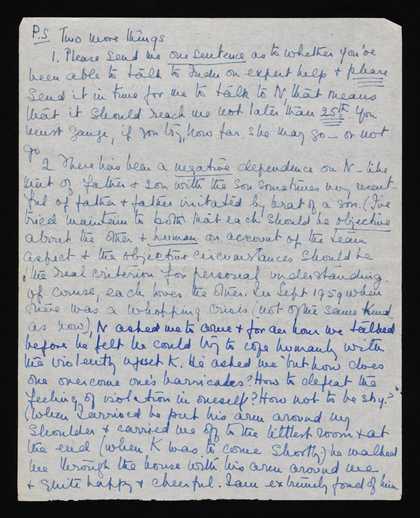 P.S Two more things
1. Please send me one sentence as to whether you've
been able to talk to Indu on expert help & please
send it in time for me to talk to N. That means
that it should reach me not later than 25th. You
must gauge, if you try, how far she may go — or not
go
2 There has been a negative dependence on N — like
that of father & son with the son sometimes very
ful of father & father irritated by brat of a son. (I've
tried maintain to both that each should be objective
about the other & human on account of the
aspect & the objective circumstances should be
the real criterion for personal understanding.
Of course, each loves the other. In Sept 1959 when
there was a whopping crisis (not of the same kind
as now), N asked me to come & for an hour we talked
before he felt he could try to cope humanly with
the violently upset K. He asked me "but how does
one overcome one's barricades? How to defeat the
feeling of violation in oneself? How not to be shy?"
(When I arrived he put his arm around my
shoulder & carried me off to the littlest room & at
the end (when K was to come shortly) he walked
me through the house with his arm around me
& quite happy & cheerful. I am extremely fond of him